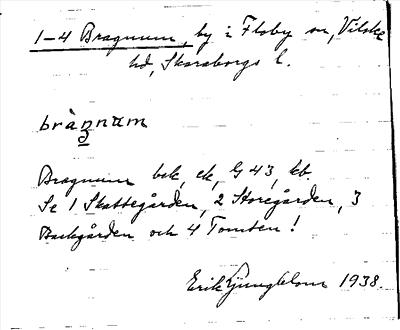 1-4 Bragnum, by i Floby sn, Vilske
hd, Skaraborgs l.
bràŋnum
Bragnum bok, ek, G 43, kb.
Se 1 Skattegården, 2 Storegården, 3
Backgården och 4 Tomten!
Erik Ljungblom 1938.